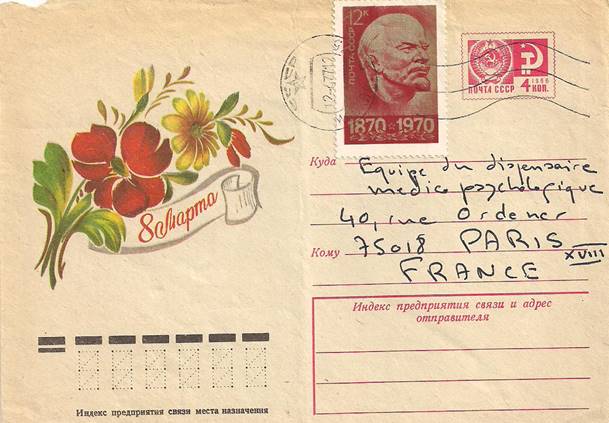 8 Марта
12 К
ПОЧТА СССР
1870 1970
1966
ПОЧТА СССР 4 КОП.
СССР
Куда
Equipe du dispensaire
medico psychologique
40, rue Ordener
Кому
75018 PARIS XVIII
FRANCE
Индекс предприятия связи и адрес
отправителя
Индекс предприятия связи места назначения